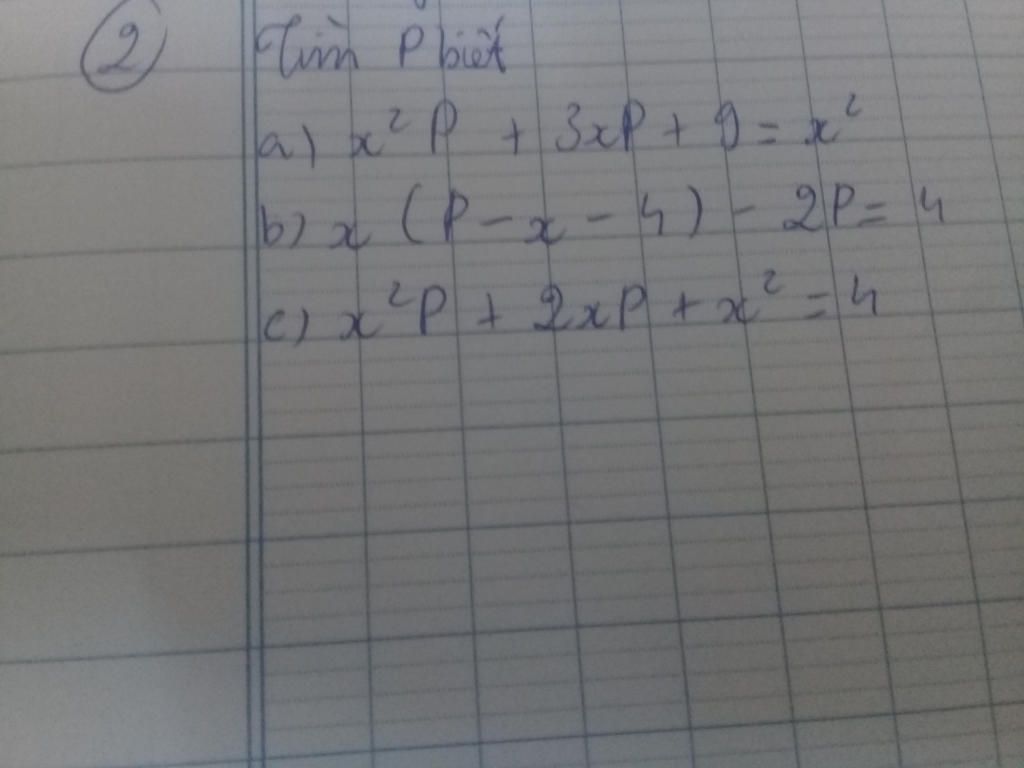 2 Tìm P biết
a) x² P + 3xP + 9 = x²
b) x (P - x - 4) - 2P = 4
c) x²P + 2xP + x² = 4